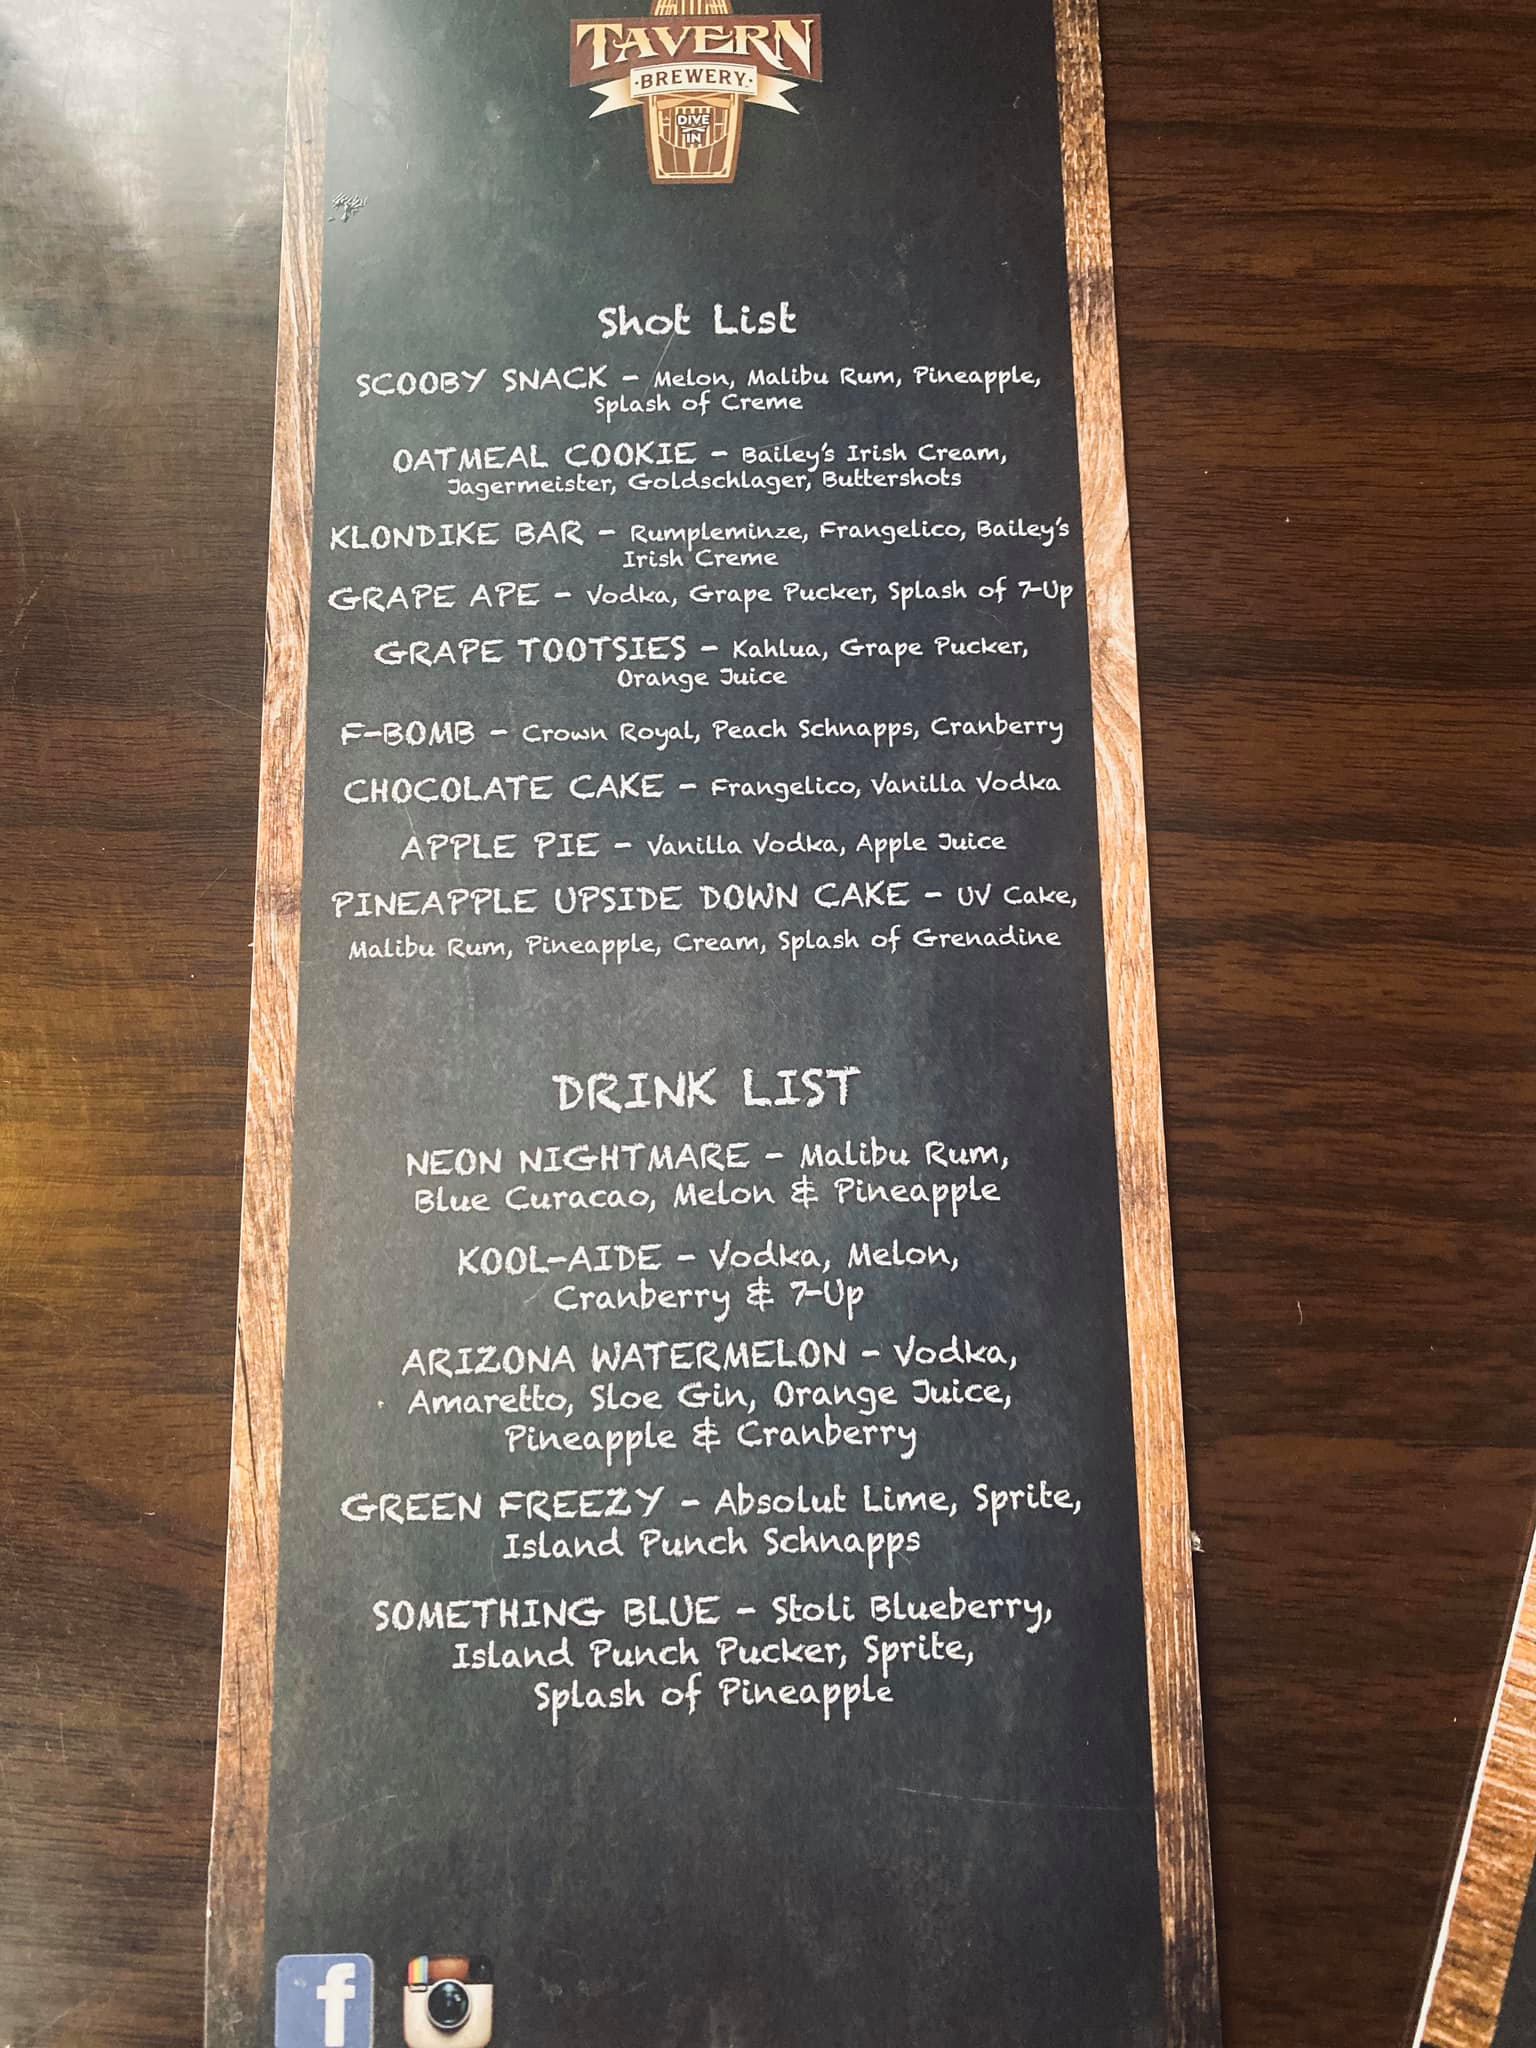 TAVERN
·BREWERY·
DIVE
IN
Shot List
SCOOBY SNACK - Melon, Malibu Rum, Pineapple,
Splash of Creme
OATMEAL COOKIE - Bailey's Irish Cream,
Jagermeister, Goldschlager, Buttershots
KLONDIKE BAR - Rumpleminze, Frangelico, Bailey's
Irish Creme
GRAPE APE - Vodka, Grape Pucker, Splash of 7-Up
GRAPE TOOTSIES - Kahlua, Grape Pucker,
Orange Juice
F-BOMB - Crown Royal, Peach Schnapps, Cranberry
CHOCOLATE CAKE - Frangelico, Vanilla Vodka
APPLE PIE - Vanilla Vodka, Apple Juice
PINEAPPLE UPSIDE DOWN CAKE - UV Cake,
Malibu Rum, Pineapple, Cream, Splash of Grenadine
DRINK LIST
NEON NIGHTMARE - Malibu Rum,
Blue Curacao, Melon & Pineapple
KOOL-AIDE - Vodka, Melon,
Cranberry & 7-Up
ARIZONA WATERMELON - Vodka,
Amaretto, Sloe Gin, Orange Juice,
Pineapple & Cranberry
GREEN FREEZY - Absolut Lime, Sprite,
Island Punch Schnapps
SOMETHING BLUE - Stoli Blueberry,
Island Punch Pucker, Sprite,
Splash of Pineapple
f